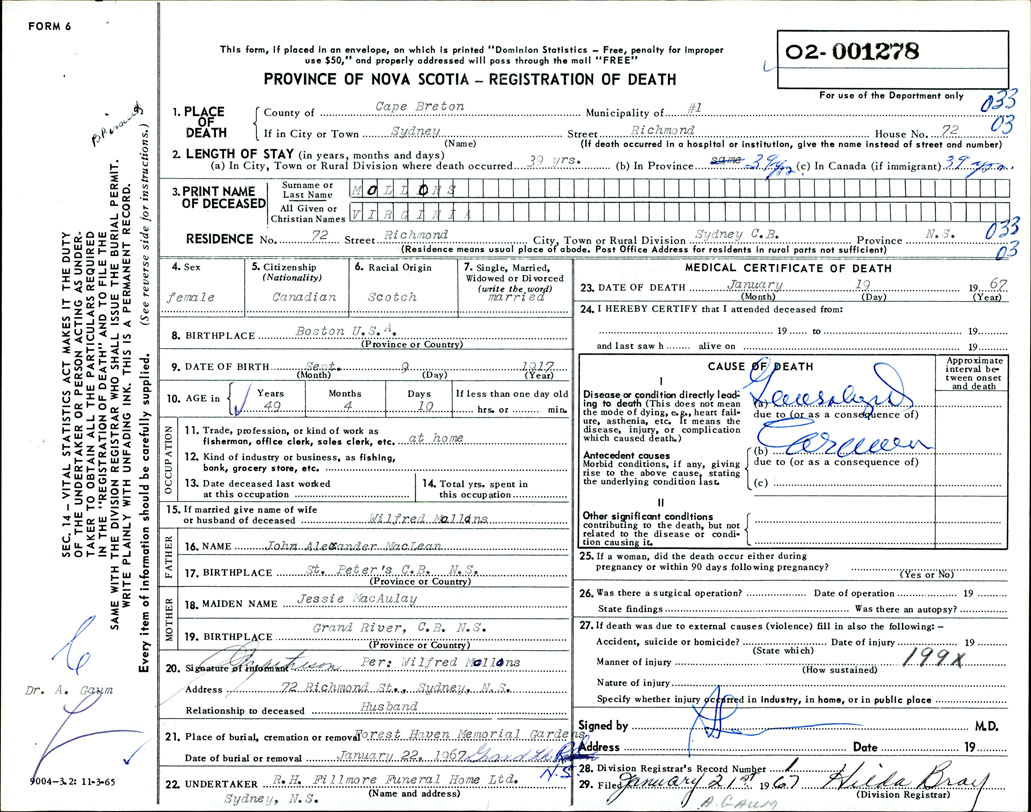 FORM 6
This form, if placed in an envelope, on which is printed "Dominion Statistics – Free, penalty for improper
use $50," and properly addressed will pass through the mail "FREE"
PROVINCE OF NOVA SCOTIA – REGISTRATION OF DEATH
02-001278
For use of the Department only
033
03
1. PLACE OF DEATH
County of Cape Breton Municipality of #1
If in City or Town Sydney Street Richmond House No. 72
(Name) (If death occurred in a hospital or institution, give the name instead of street and number)
2. LENGTH OF STAY (in years, months and days)
(a) In City, Town or Rural Division where death occurred 39 yrs. (b) In Province same 39 yrs (c) In Canada (if immigrant) 39 yrs.
3. PRINT NAME OF DECEASED
Surname or Last Name MOLLONS
All Given or Christian Names VIRGINIA
RESIDENCE No. 72 Street Richmond City, Town or Rural Division Sydney C.B. Province N.S.
(Residence means usual place of abode. Post Office Address for residents in rural parts not sufficient)
033
03
4. Sex
female
5. Citizenship (Nationality)
Canadian
6. Racial Origin
Scotch
7. Single, Married, Widowed or Divorced (write the word)
married
8. BIRTHPLACE Boston U.S.A.
(Province or Country)
9. DATE OF BIRTH Sept. 9 1917
(Month) (Day) (Year)
10. AGE in Years Months Days If less than one day old
49 4 10 hrs. or min.
OCCUPATION
11. Trade, profession, or kind of work as
fisherman, office clerk, sales clerk, etc. at home
12. Kind of industry or business, as fishing,
bank, grocery store, etc.
13. Date deceased last worked
at this occupation
14. Total yrs. spent in
this occupation
15. If married give name of wife
or husband of deceased Wilfred Mollons
FATHER
16. NAME John Alexander MacLean
17. BIRTHPLACE St. Peter's C.B. N.S.
(Province or Country)
MOTHER
18. MAIDEN NAME Jessie MacAulay
19. BIRTHPLACE Grand River, C.B. N.S.
(Province or Country)
20. Signature of informant Per: Wilfred Mollons
Address 72 Richmond St., Sydney, N.S.
Relationship to deceased Husband
21. Place of burial, cremation or removal Forest Haven Memorial Gardens
Date of burial or removal January 22, 1967
N.S
22. UNDERTAKER R.H. Fillmore Funeral Home Ltd.
Sydney, N.S. (Name and address)
MEDICAL CERTIFICATE OF DEATH
23. DATE OF DEATH January 19 1967
(Month) (Day) (Year)
24. I HEREBY CERTIFY that I attended deceased from:
19 to 19
and last saw h alive on 19
CAUSE OF DEATH
Approximate interval between onset and death
I
Disease or condition directly leading to death (This does not mean the mode of dying, e.g., heart failure, asthenia, etc. It means the disease, injury, or complication which caused death.)
(a) Generalized
due to (or as a consequence of)
Antecedent causes
Morbid conditions, if any, giving rise to the above cause, stating the underlying condition last.
(b) Carcinoma
due to (or as a consequence of)
(c)
II
Other significant conditions
contributing to the death, but not related to the disease or condition causing it.
25. If a woman, did the death occur either during
pregnancy or within 90 days following pregnancy?
(Yes or No)
26. Was there a surgical operation? Date of operation 19
State findings Was there an autopsy?
27. If death was due to external causes (violence) fill in also the following: –
Accident, suicide or homicide? Date of injury 19
(State which)
Manner of injury 199X
(How sustained)
Nature of injury
Specify whether injury occurred in Industry, in home, or in public place
Signed by M.D.
Address Date 19
28. Division Registrar's Record Number
29. Filed January 21st 1967 Hilda Bray
(Division Registrar)
A. GAUM
SEC. 14 – VITAL STATISTICS ACT MAKES IT THE DUTY
OF THE UNDERTAKER OR PERSON ACTING AS UNDER-
TAKER TO OBTAIN ALL THE PARTICULARS REQUIRED
IN THE "REGISTRATION OF DEATH" AND TO FILE THE
SAME WITH THE DIVISION REGISTRAR WHO SHALL ISSUE THE BURIAL PERMIT.
WRITE PLAINLY WITH UNFADING INK. THIS IS A PERMANENT RECORD.
Every item of information should be carefully supplied. (See reverse side for instructions.)
Dr. A. Gaum
9004-3.2: 11-3-65